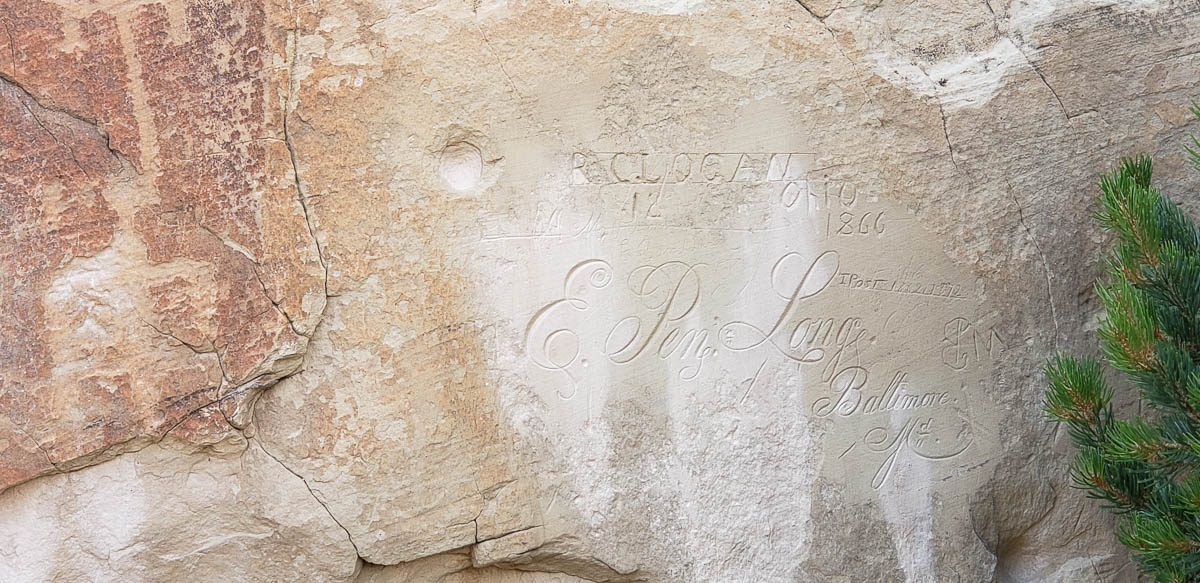 R. C LOGAN
12 OHIO
1866
E. Pen: Long.
Baltimore.
Md.